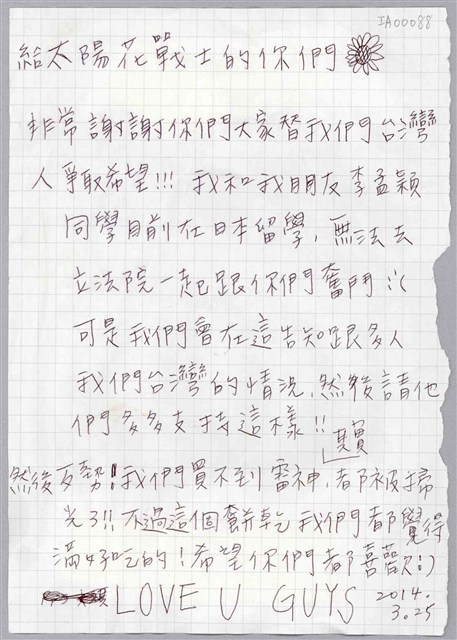 IA00088
給太陽花戰士的你們
非常謝謝你們大家替我們台灣
人爭取希望!!! 我和我朋友李孟穎
同學目前在日本留學，無法去
立法院一起跟你們奮鬥:'(
可是我們會在這告知跟多人
我們台灣的情況，然後請他
們多多支持這樣!!
其實
然後歹勢!我們買不到雷神，都被掃
光了!! 不過這個餅乾我們都覺得
滿好吃的!希望你們都喜歡:)
LOVE U GUYS 2014.
3.25